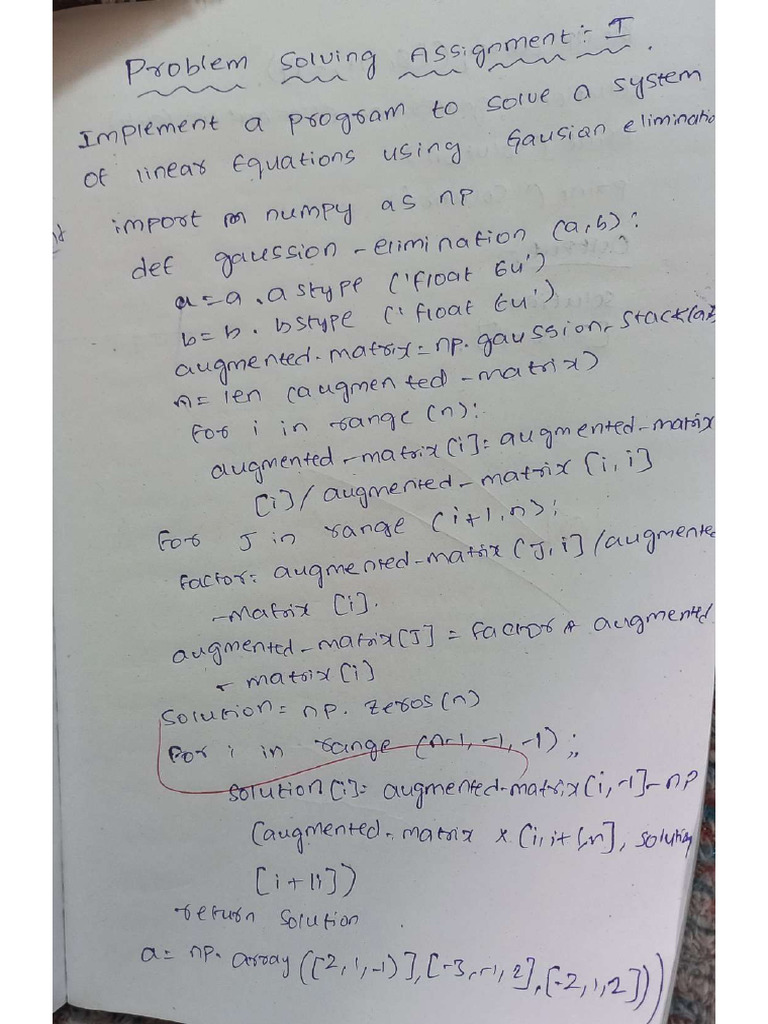 Problem Solving Assignment: I.
Implement a program to solve a system
of linear Equations using Gausian eliminatio
import numpy as np
def gaussion-elimination (a,b):
a=a.astype ('float 64')
b=b.bstype ('float 64')
augmented-matrix=np.gaussion-stack(a
n=len (augmented-matrix)
for i in range (n):
augmented-matrix[i]=augmented-matrix
[i]/augmented-matrix [i,i]
for J in range (i+1,n):
factor: augmented-matrix [J,i]/augmente
-matrix [i].
augmented-matrix[J] = factor * augmented
- matrix[i]
solution= np. zeros(n)
for i in range (n-1,-1,-1);
solution[i]= augmented-matrix[i,-1]-np
(augmented-matrix * [i,i+1,n], solution
[i+1i])
return solution
a= np. array ([2,1,-1)],[-3,-1,2],[-2,1,2]))